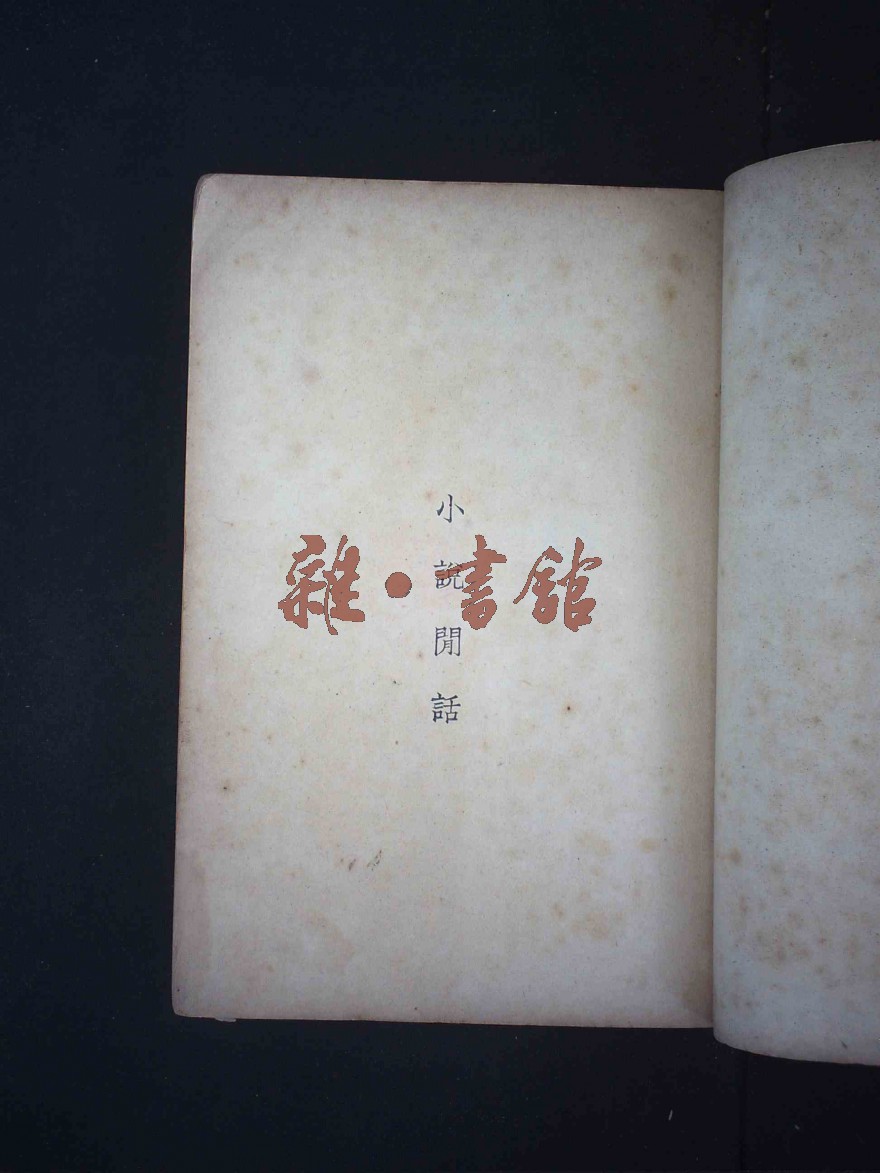 小說閒話
雜·書館